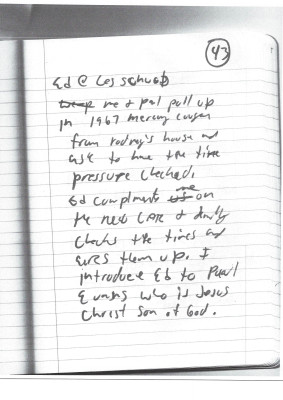 43
Ed @ Les Schwab
me & pal pull up
in 1967 Mercury Cougar
from Rodney's house and
ask to have the tire
pressure checked.
Ed compliments me on
the new car &
checks the tires and
them up. I
introduce Ed to Paul
Evans who is Jesus
Christ Son of God.